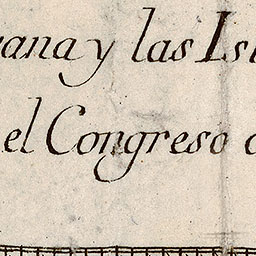 ana y las Isl
el Congreso